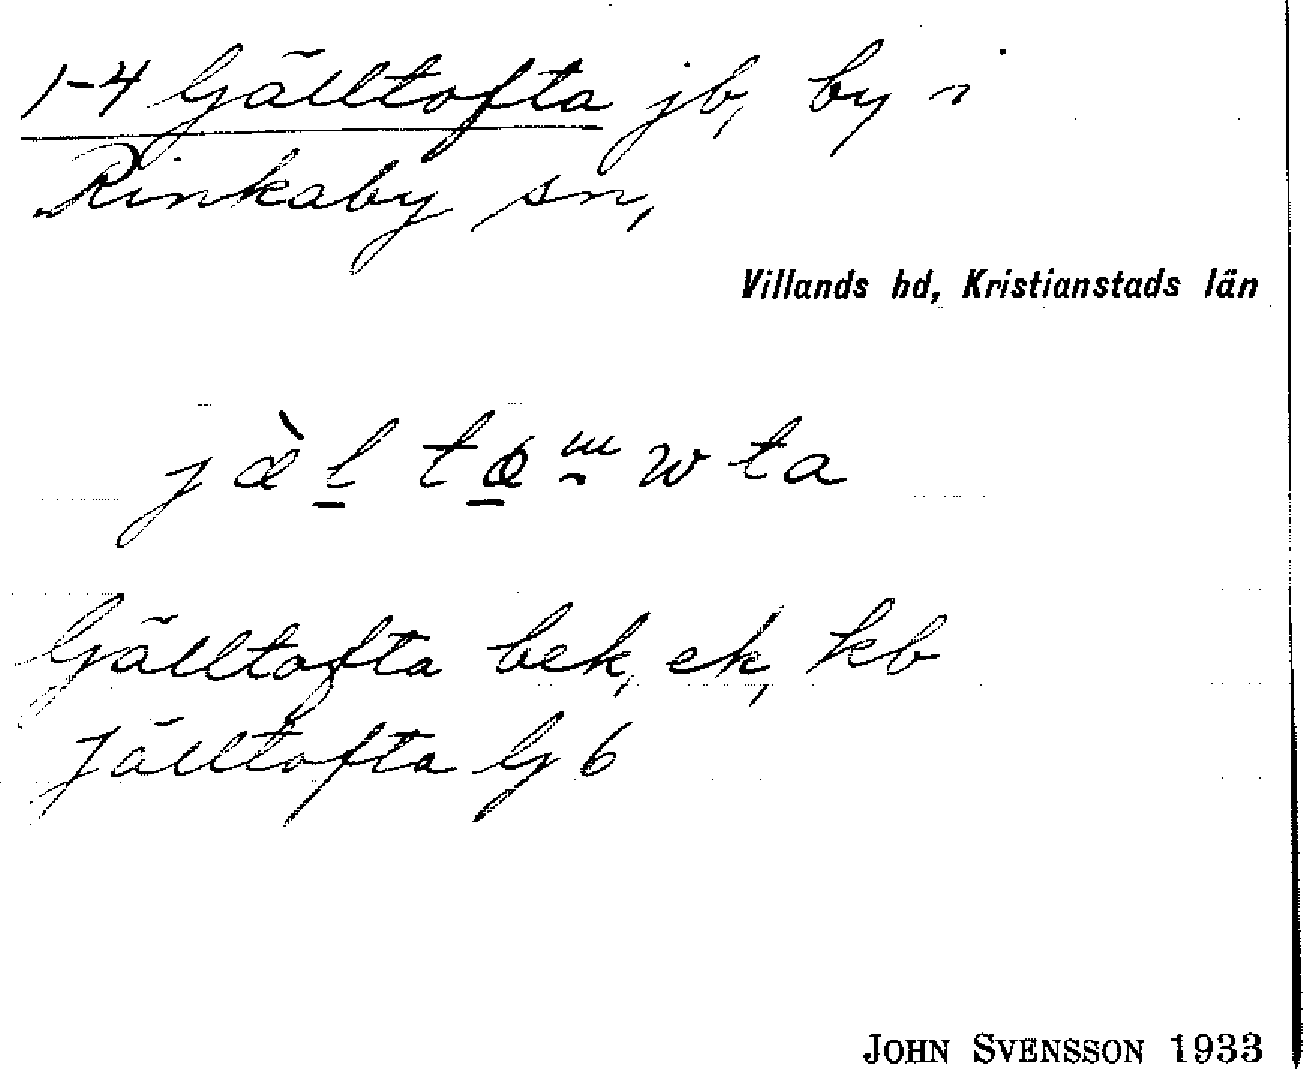 1-4 Gälltofta jb, by i
Rinkaby sn,
Villands hd, Kristianstads län
Gälltofta bek, ek, kb
Jälltofta Gj 6
John Svensson 1933